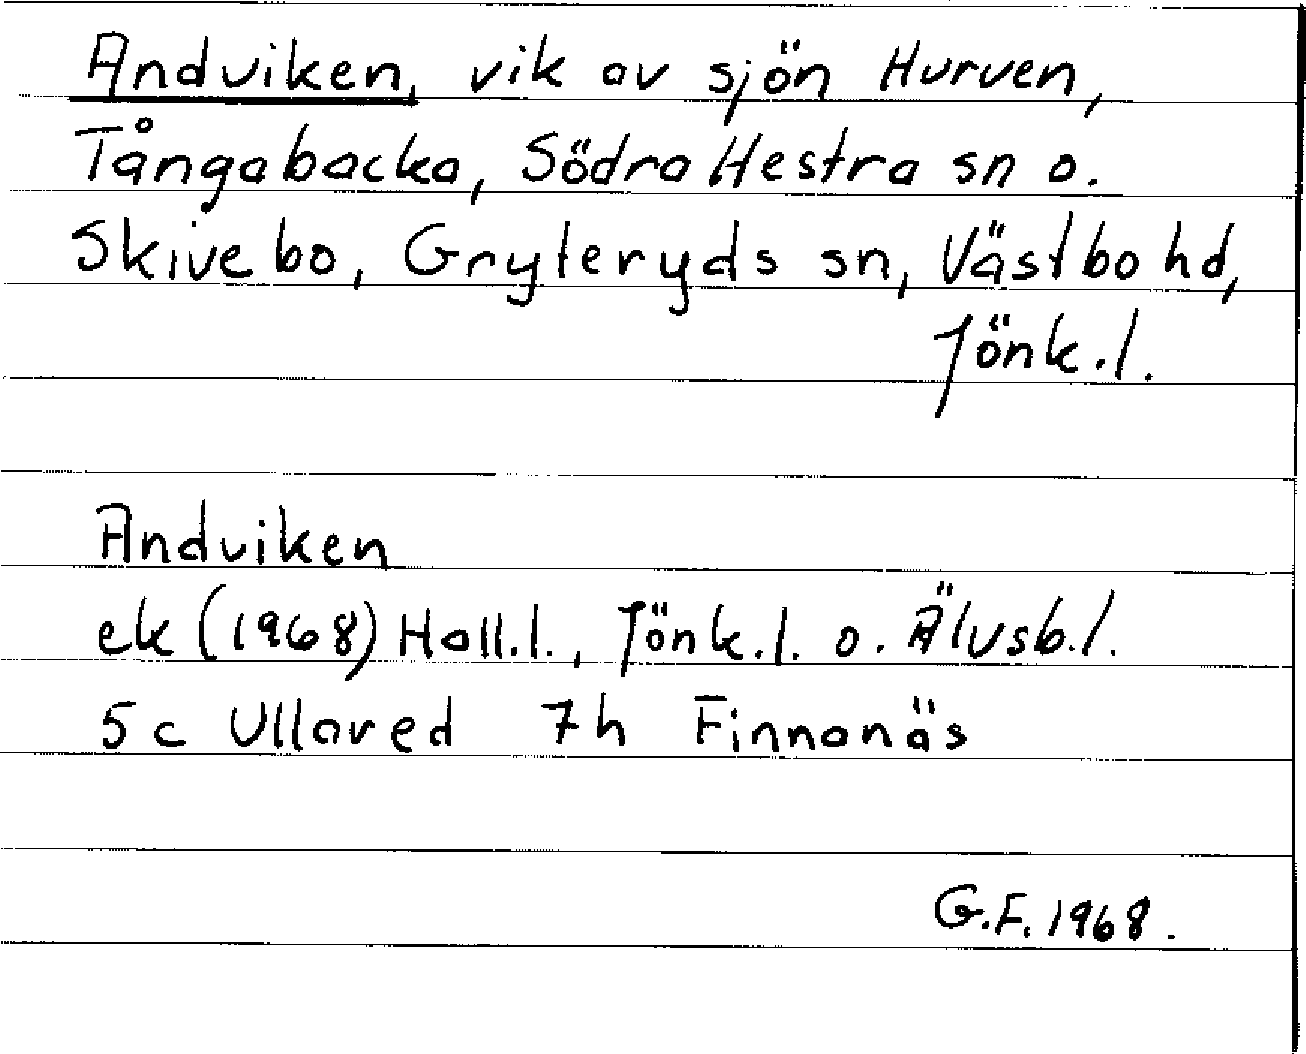 Andviken, vik av sjön Hurven,
Tångabacka, Södra Hestra sn o.
Skivebo, Gryteryds sn, Västbo hd,
Jönk.l.
Andviken
ek (1968) Hall.l., Jönk.l. o. Älvsb.l.
5c Ullared 7h Finnanäs
G.F. 1968.